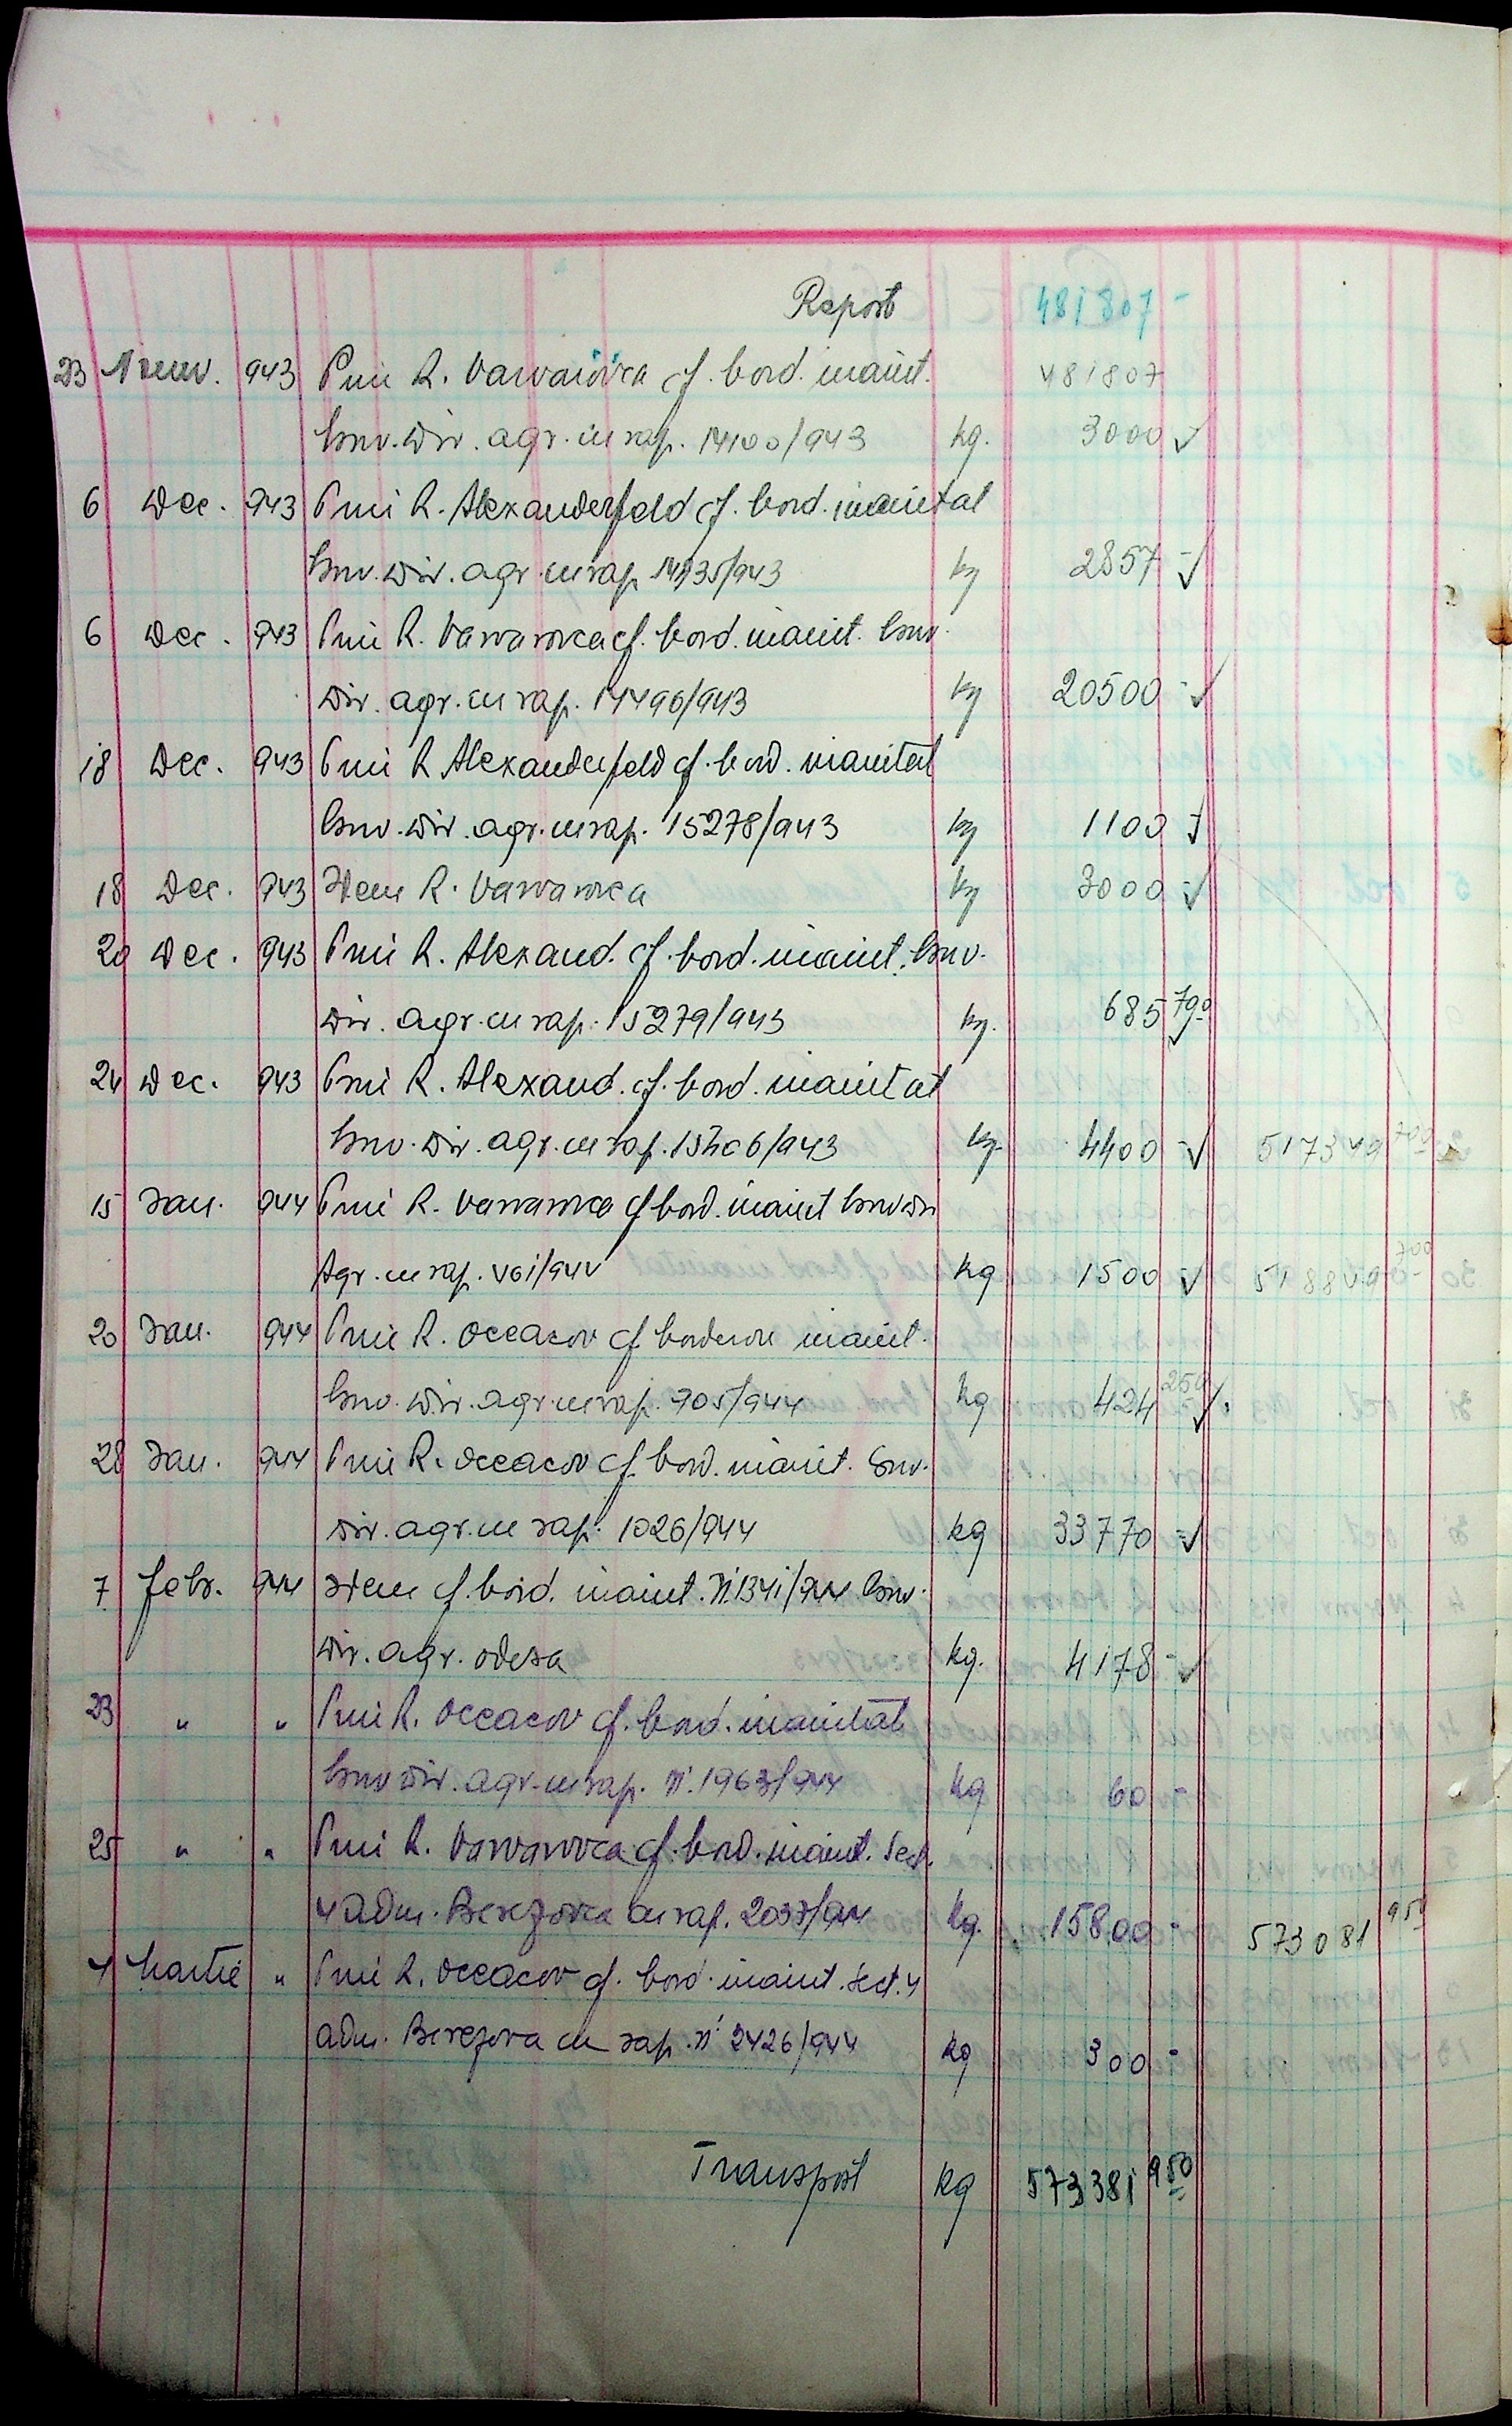 Report 481807 -
23 Noemv. 943 Prim R. Varvarovca cf. bord. înaint. 481807
Insp. Dir. agr. cu rap. 14100/943 kg. 3000 -
6 Dec. 943 Prim R. Alexanderfeld cf. bord. înaintat
Dir. agr. cu rap. /943 kg 2857 -
6 Dec. 943 Prim R. Varvarovca cf. bord. înaint.
Dir. agr. cu rap. 14496/943 kg 20500 -
18 Dec. 943 Prim R Alexanderfeld cf. bord. înaintat
Dir. agr. cu rap. 15278/943 kg 1100 -
18 Dec. 943 Idem R. Varvarovca kg 3000 -
20 Dec. 943 Prim R. Alexand. cf. bord. înaint.
Dir. agr. cu rap. 15279/943 kg. 685 700
24 Dec. 943 Prim R. Alexand. cf. bord. înaintat
Dir. agr. cu rap. /943 kg. 4400 - 517349 700
15 Ian. 944 Prim R. Varvarovca cf bord. înaint
Agr. cu rap. 401/944 kg 1500 - 518849 700
20 Ian. 944 Prim R. Oceacov cf borderou înaint.
Dir. agr. cu rap. 705/944 kg 424 250
28 Ian. 944 Prim R. Oceacov cf. bord. înaint.
Dir. agr. cu rap. 1026/944 kg 33770 =
7 Febr. 944 Idem cf. bord. înaint. N: 1341/944
Dir. agr. Odesa kg. 4178 -
23 " " Prim R. Oceacov cf. bord. înaintat
Dir. agr. cu rap. N: 1963/944 kg 60 -
25 " " Prim R. Varvarovca cf. bord. înaint. Sect.
4 adm. Berezovca cu rap. /944 kg. 15800 - 573081 950
Martie " Prim R. Oceacov cf. bord. înaint. Sect. 4
adm. Berezova cu rap. N: 2426/944 kg 300 -
Transport kg 573381 950